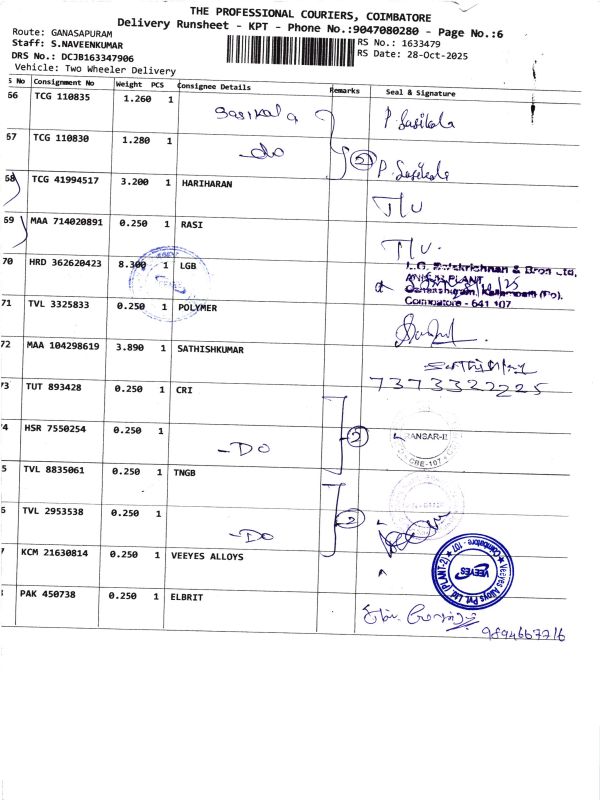 THE PROFESSIONAL COURIERS, COIMBATORE
Delivery Runsheet - KPT - Phone No.:9047080280 - Page No.:6
Route: GANASAPURAM
RS No.: 1633479
Staff: S.NAVEENKUMAR
RS Date: 28-Oct-2025
DRS No.: DCJB163347906
Vehicle: Two Wheeler Delivery
S No Consignment No Weight PCS Consignee Details Remarks Seal & Signature
66 TCG 110835 1.260 1 Sasikala P. Sasikala
67 TCG 110830 1.280 1 -do P. Sasikala
68 TCG 41994517 3.200 1 HARIHARAN T/U
69 MAA 714020891 0.250 1 RASI T/U.
70 HRD 362620423 8.300 1 LGB L.G. Balakrishnan & Bros Ltd,
ANNUR PLANT
Coimbatore - 641 107
71 TVL 3325833 0.250 1 POLYMER
72 MAA 104298619 3.890 1 SATHISHKUMAR
73 TUT 893428 0.250 1 CRI 7373322225
4 HSR 7550254 0.250 1 -DO 2
5 TVL 8835061 0.250 1 TNGB
6 TVL 2953538 0.250 1 -DO 2
7 KCM 21630814 0.250 1 VEEYES ALLOYS Veeyes Alloys Pvt. Ltd (PLANT-2) Coimbatore - 107 VEEYES
PAK 450738 0.250 1 ELBRIT
9894667716